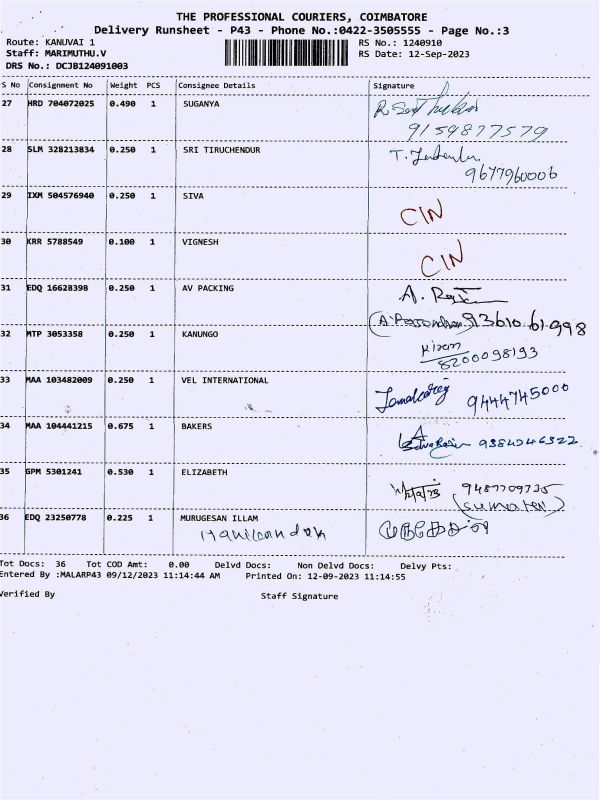 THE PROFESSIONAL COURIERS, COIMBATORE
Delivery Runsheet - P43 - Phone No.:0422-3505555 - Page No.:3
Route: KANUVAI 1 RS No.: 1240910
Staff: MARIMUTHU.V RS Date: 12-Sep-2023
DRS No.: DCJB124091003
S No Consignment No Weight PCS Consignee Details Signature
27 HRD 704072025 0.490 1 SUGANYA
9159877579
28 SLM 328213834 0.250 1 SRI TIRUCHENDUR T.
9677960006
29 IXM 504576940 0.250 1 SIVA
CIN
30 KRR 5788549 0.100 1 VIGNESH
CIN
31 EDQ 16628398 0.250 1 AV PACKING A.
93610 61998
32 MTP 3053358 0.250 1 KANUNGO
8200098193
33 MAA 103482009 0.250 1 VEL INTERNATIONAL
9444745000
34 MAA 104441215 0.675 1 BAKERS
9384246322
35 GPM 5301241 0.530 1 ELIZABETH
9487709735
36 EDQ 23250778 0.225 1 MURUGESAN ILLAM
Manikandan
Tot Docs: 36 Tot COD Amt: 0.00 Delvd Docs: Non Delvd Docs: Delvy Pts:
Entered By :MALARP43 09/12/2023 11:14:44 AM Printed On: 12-09-2023 11:14:55
Verified By Staff Signature